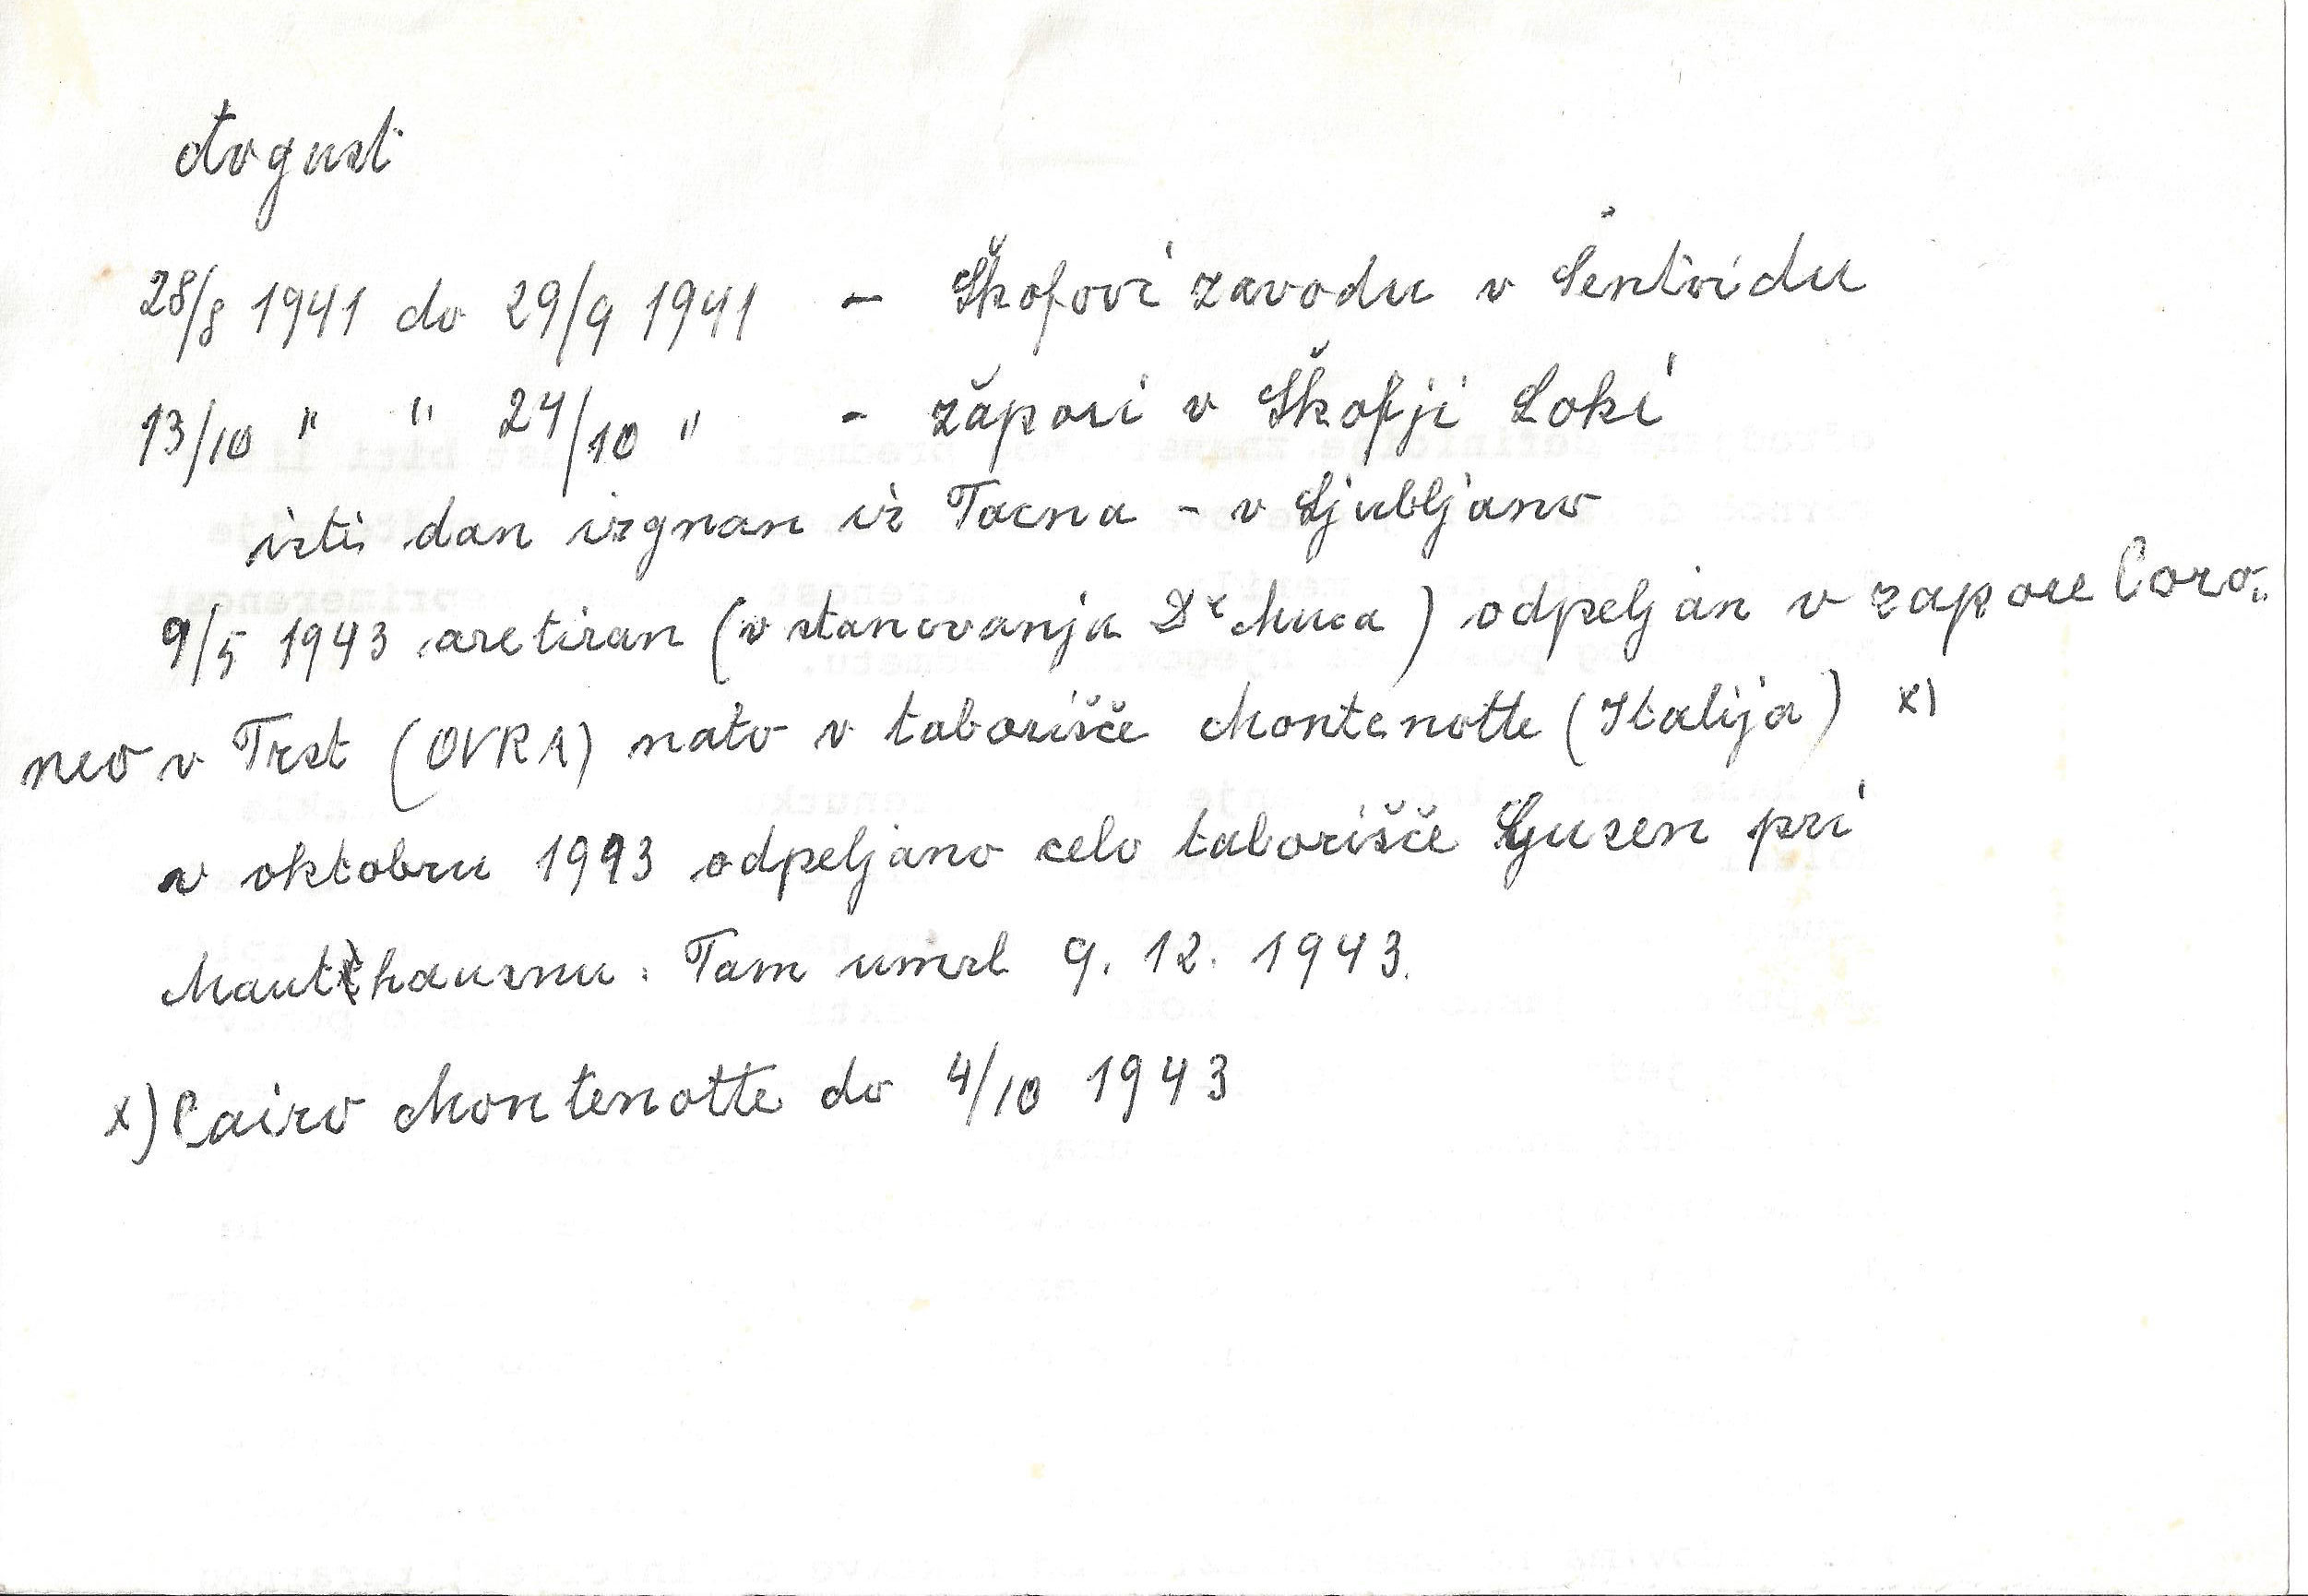 Avgust
28/8 1941 do 29/9 1941 - Škofovi zavodu v Šentvidu
13/10 " " 24/10 " - zapori v Škofji Loki
isti dan izgnan iz Tacna - v Ljubljano
9/5 1943 aretiran (v stanovanju Dr Muca) odpeljan v zapore Coro-
neo v Trst (OVRA) nato v taborišče Montenotte (Italija) x)
v oktobru 1943 odpeljano celo taborišče Gusen pri
Mauthausnu. Tam umrl 9. 12. 1943.
x) Cairo Montenotte do 4/10 1943